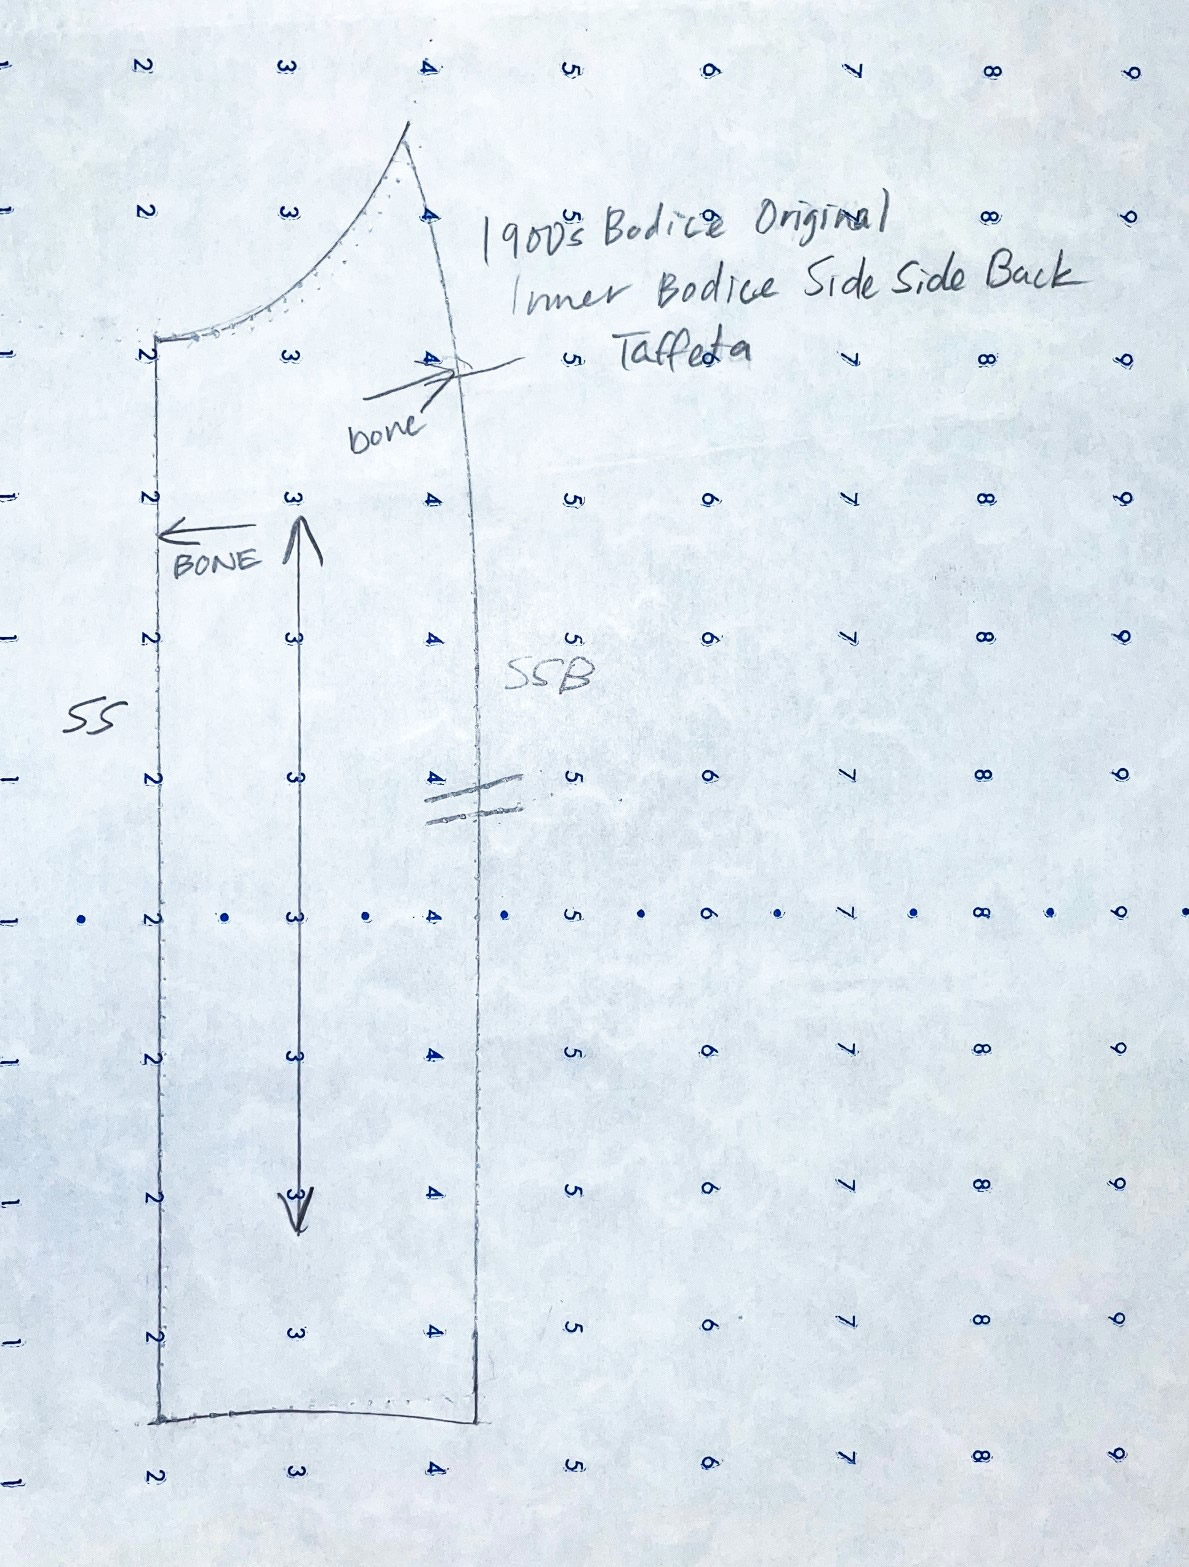 1 2 3 4 5 6 7 8 9
1 2 3 4 5 6 7 8 9
1900s Bodice Original
Inner Bodice Side Side Back
Taffeta
1 2 3 4 5 6 7 8 9
bone
1 2 3 4 5 6 7 8 9
BONE
1 2 3 4 5 6 7 8 9
SSB
SS
1 2 3 4 5 6 7 8 9
1 2 3 4 5 6 7 8 9
1 2 3 4 5 6 7 8 9
1 2 3 4 5 6 7 8 9
1 2 3 4 5 6 7 8 9
1 2 3 4 5 6 7 8 9